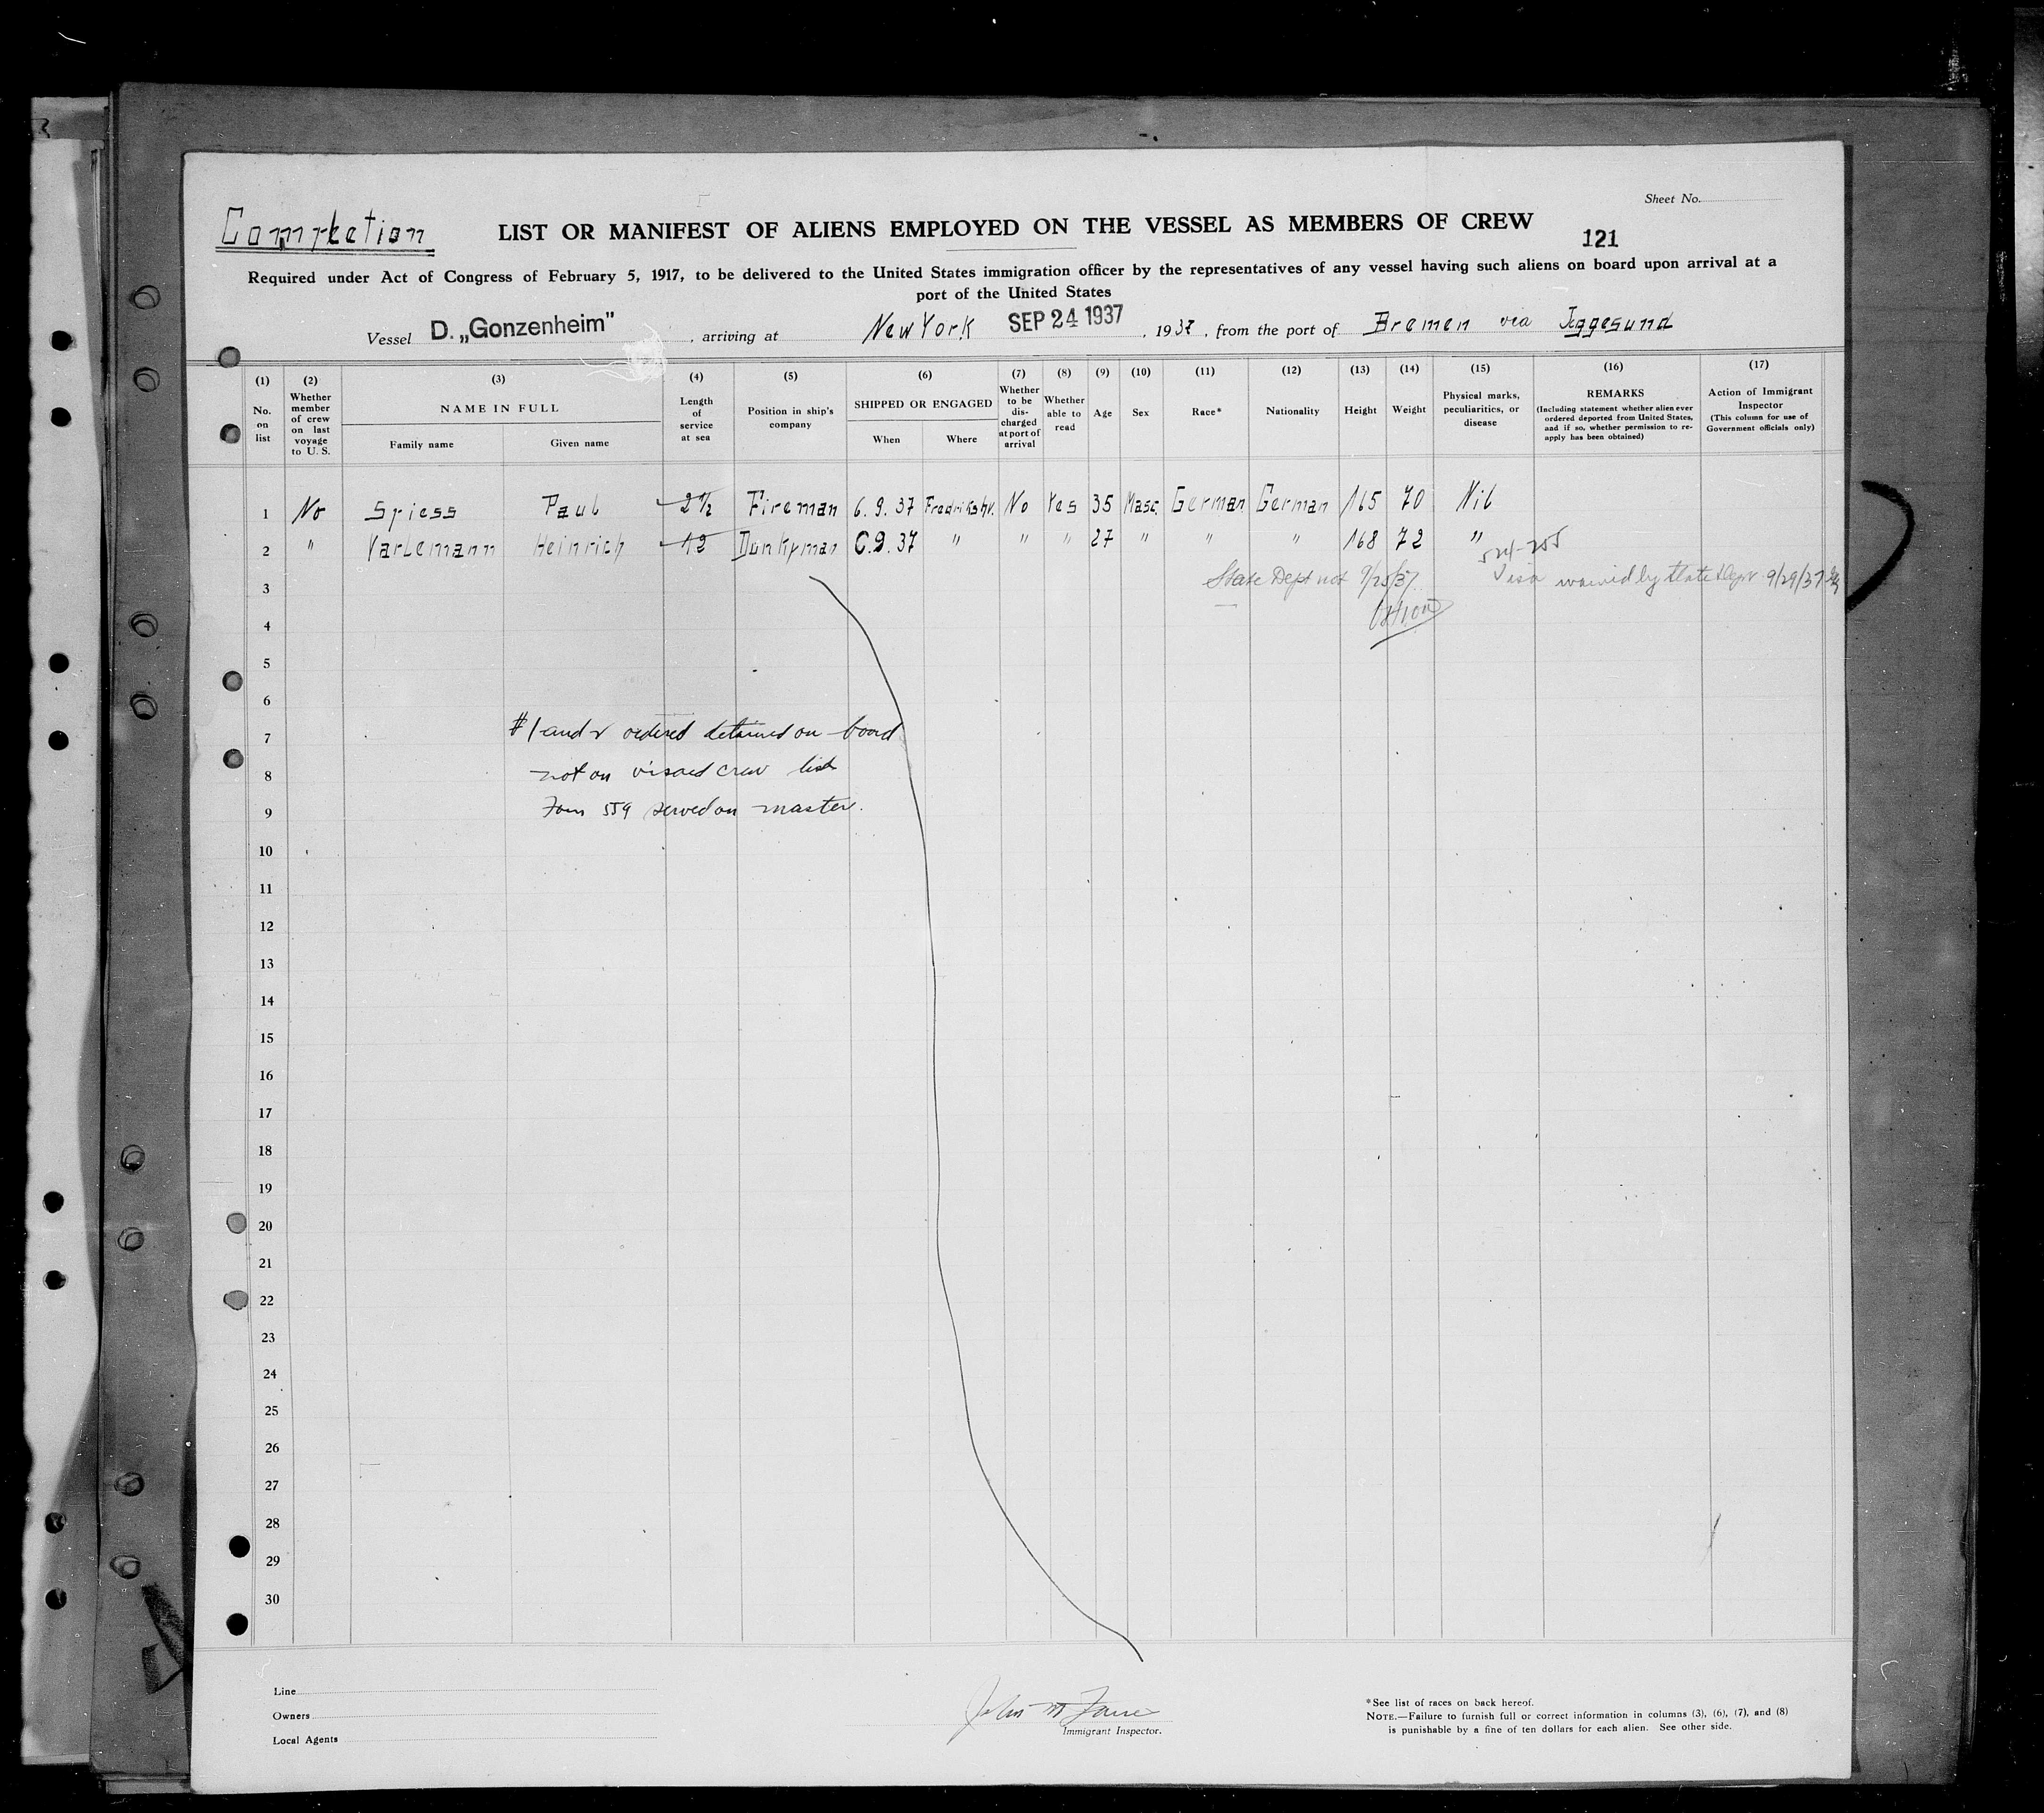 Sheet No.
Completion
LIST OR MANIFEST OF ALIENS EMPLOYED ON THE VESSEL AS MEMBERS OF CREW
121
Required under Act of Congress of February 5, 1917, to be delivered to the United States immigration officer by the representatives of any vessel having such aliens on board upon arrival at a
port of the United States
Vessel D. „Gonzenheim" , arriving at New York SEP 24 1937 , 1937 , from the port of Bremen via Iggesund
(1) (2) (3) (4) (5) (6) (7) (8) (9) (10) (11) (12) (13) (14) (15) (16) (17)
No. on list
Whether member of crew on last voyage to U. S.
NAME IN FULL
Family name
Given name
Length of service at sea
Position in ship's company
SHIPPED OR ENGAGED
When
Where
Whether to be dis-charged at port of arrival
Whether able to read
Age
Sex
Race*
Nationality
Height
Weight
Physical marks, peculiarities, or disease
REMARKS
(Including statement whether alien ever ordered deported from United States, and if so, whether permission to re-apply has been obtained)
Action of Immigrant Inspector
(This column for use of Government officials only)
1 No Spiess Paul 2 ½ Fireman 6. 9. 37 Fredrikshv. No Yes 35 Masc. German German 165 70 Nil
2 " Varlemann Heinrich 12 Dunkyman 6.9.37 " " " 27 " " " 168 72 "
3 State Dept not 9/25/37 Visa waived by State Dept 9/29/37
4
5
6
7 #1 and 2 ordered detained on board
8 not on visaed crew list
9 Form 559 served on master.
10
11
12
13
14
15
16
17
18
19
20
21
22
23
24
25
26
27
28
29
30
Line
Owners
Local Agents
John M
Immigrant Inspector.
*See list of races on back hereof.
NOTE.—Failure to furnish full or correct information in columns (3), (6), (7), and (8)
is punishable by a fine of ten dollars for each alien. See other side.